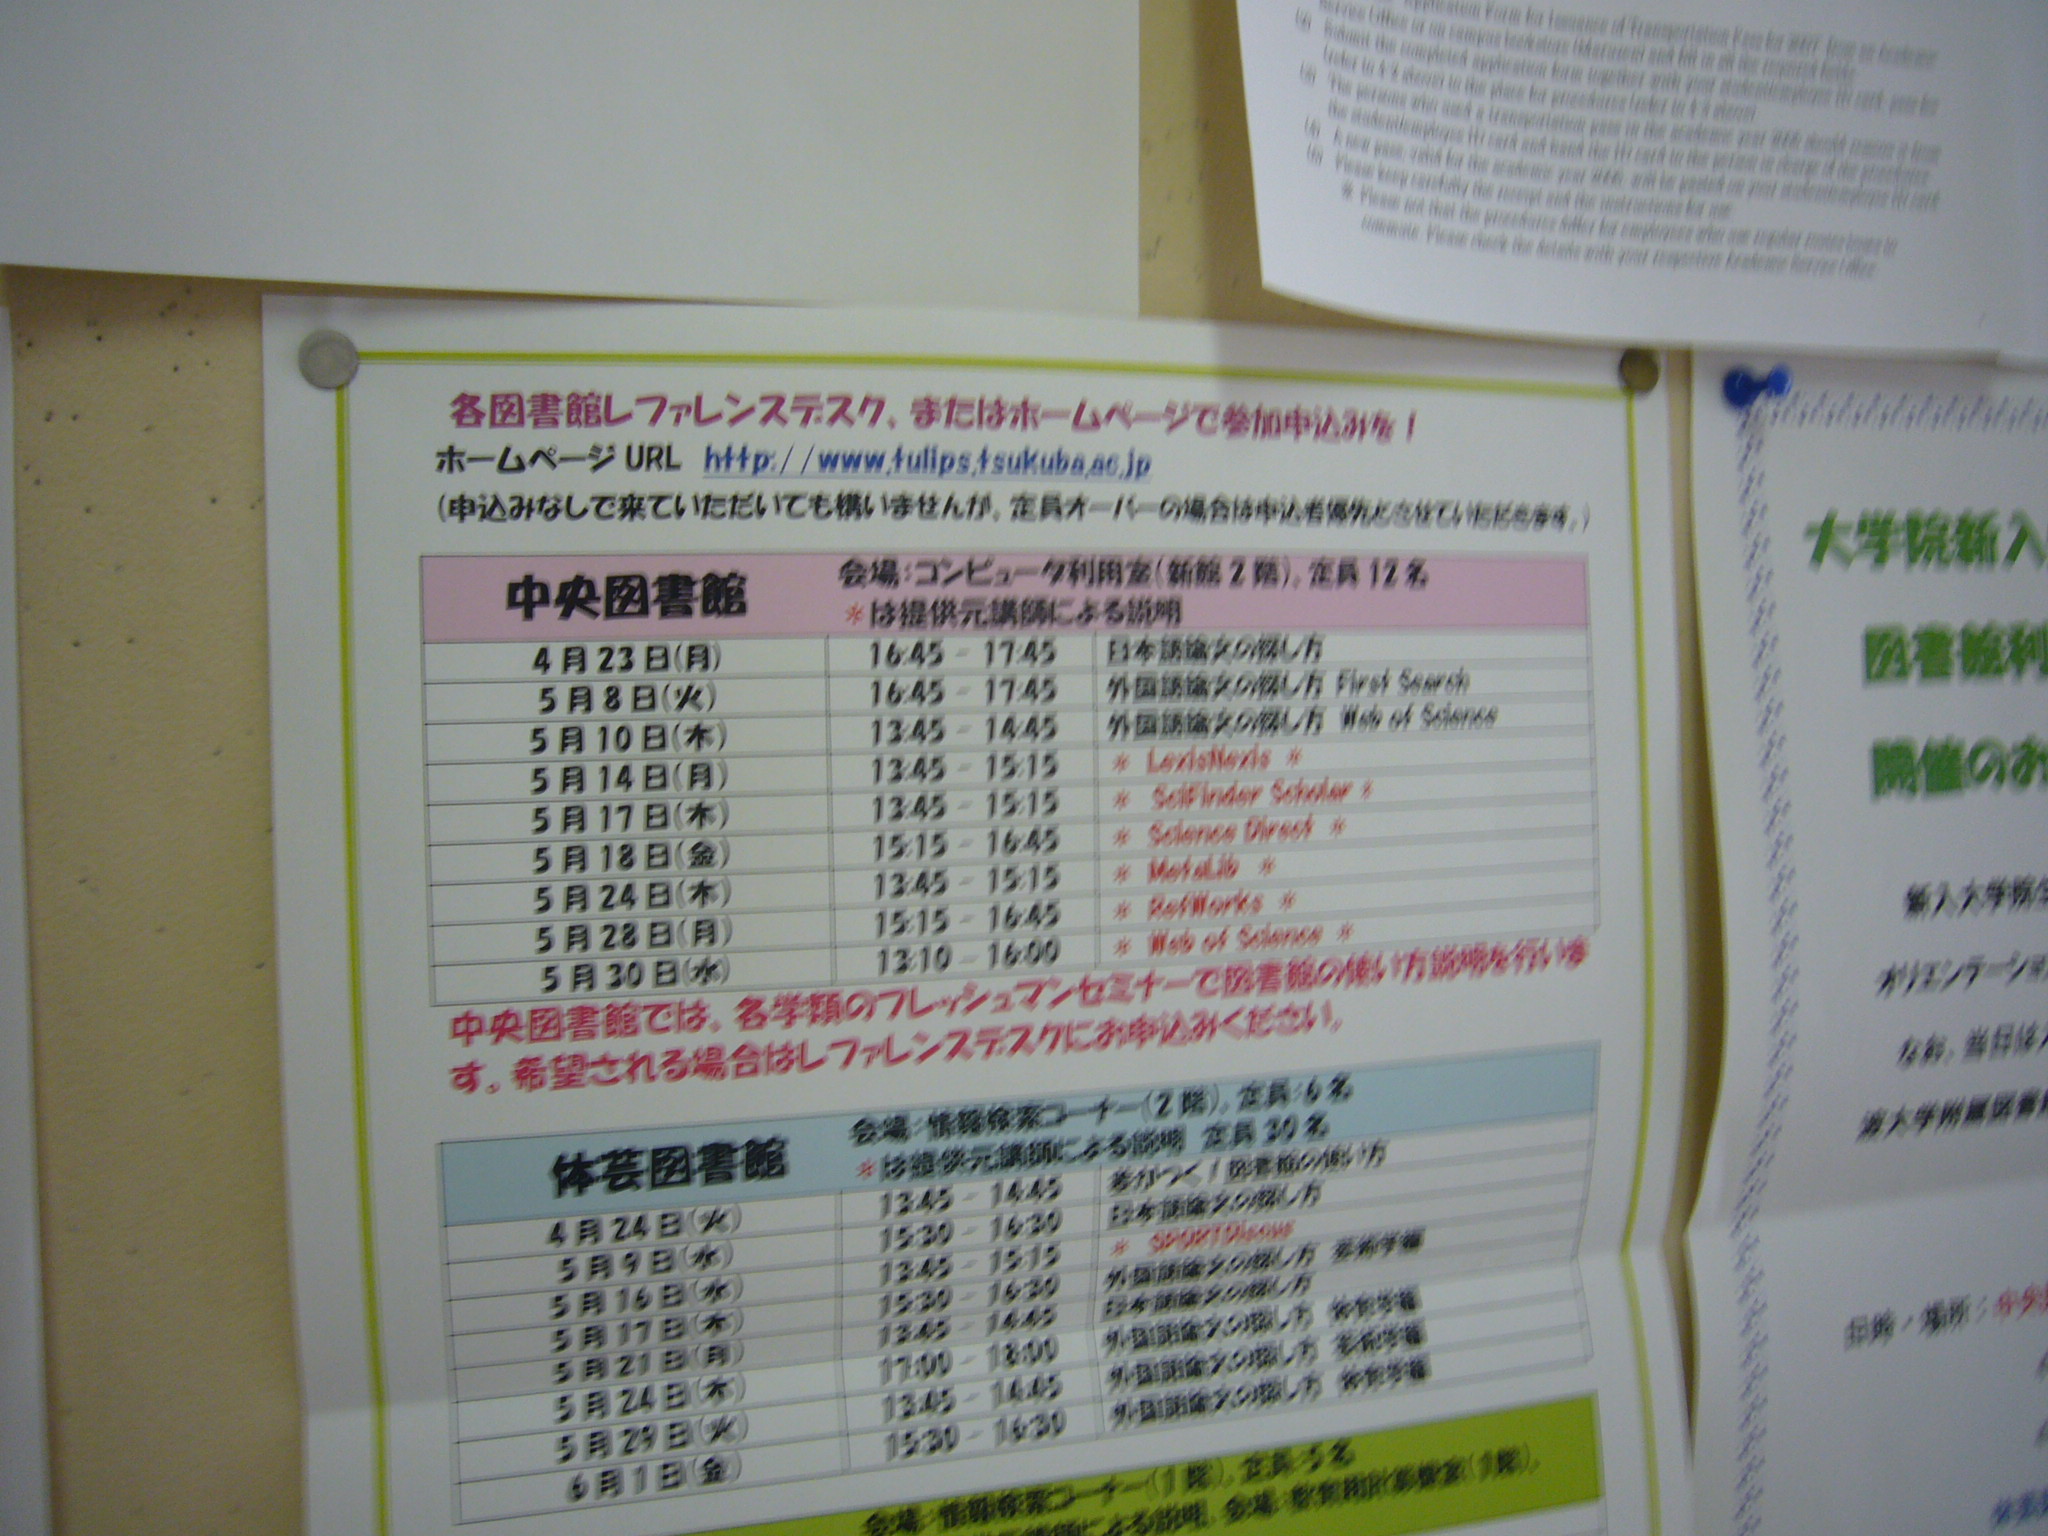 Application Form for Issuance of Transportation Pass for
Submit the completed application form together with your student/employee ID card
The persons who used a transportation pass in the academic year
the student/employee ID card and hand the ID card to the person in charge of the procedures
A new pass, valid for the academic year 2007, will be pasted on your student/employee ID card
Please keep carefully the receipt and the instructions for use
※ Please not that the procedures differ for employees who use regular route buses to
commute. Please check the details with your respective Academic Service Office
各図書館レファレンスデスク、またはホームページで参加申込みを！
ホームページ URL http://www.tulips.tsukuba.ac.jp
(申込みなしで来ていただいても構いませんが、定員オーバーの場合は申込者優先とさせていただきます。)
中央図書館 会場：コンピュータ利用室(新館2階)、定員12名
*は提供元講師による説明
4月23日(月) 16:45 - 17:45 日本語論文の探し方
5月8日(火) 16:45 - 17:45 外国語論文の探し方 First Search
5月10日(木) 13:45 - 14:45 外国語論文の探し方 Web of Science
5月14日(月) 13:45 - 15:15 * LexisNexis *
5月17日(木) 13:45 - 15:15 * SciFinder Scholar *
5月18日(金) 15:15 - 16:45 * Science Direct *
5月24日(木) 13:45 - 15:15 * MetaLib *
5月28日(月) 15:15 - 16:45 * RefWorks *
5月30日(水) 13:10 - 16:00 * Web of Science *
中央図書館では、各学類のフレッシュマンセミナーで図書館の使い方説明を行いま
す。希望される場合はレファレンスデスクにお申込みください。
体芸図書館 会場：情報検索コーナー(2階)、定員:6名
*は提供元講師による説明 定員30名
4月24日(火) 13:45 - 14:45 差がつく！図書館の使い方
5月9日(水) 15:30 - 16:30 日本語論文の探し方
5月16日(水) 13:45 - 15:15 * SPORTDiscus
5月17日(木) 15:30 - 16:30 外国語論文の探し方 芸術学編
5月21日(月) 13:45 - 14:45 日本語論文の探し方
5月24日(木) 17:00 - 18:00 外国語論文の探し方 体育学編
5月29日(火) 13:45 - 14:45 外国語論文の探し方 芸術学編
6月1日(金) 15:30 - 16:30 外国語論文の探し方 体育学編
会場：情報検索コーナー(1階)、定員:5名
による説明、会場：
大学院新入
図書館利
開催のお
新入大学院生
オリエンテーショ
なお、当日は入
波大学附属図書館
日時・場所：中央